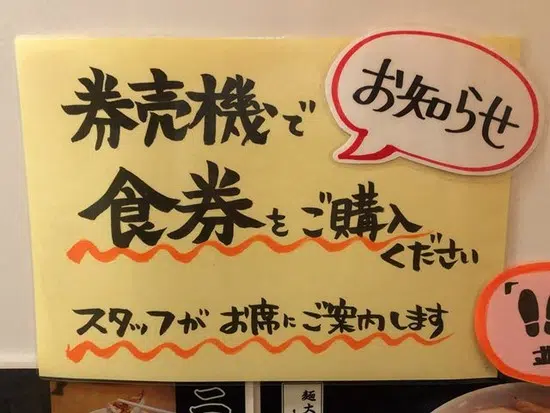 お知らせ
券売機で
食券をご購入
ください
スタッフがお席にご案内します